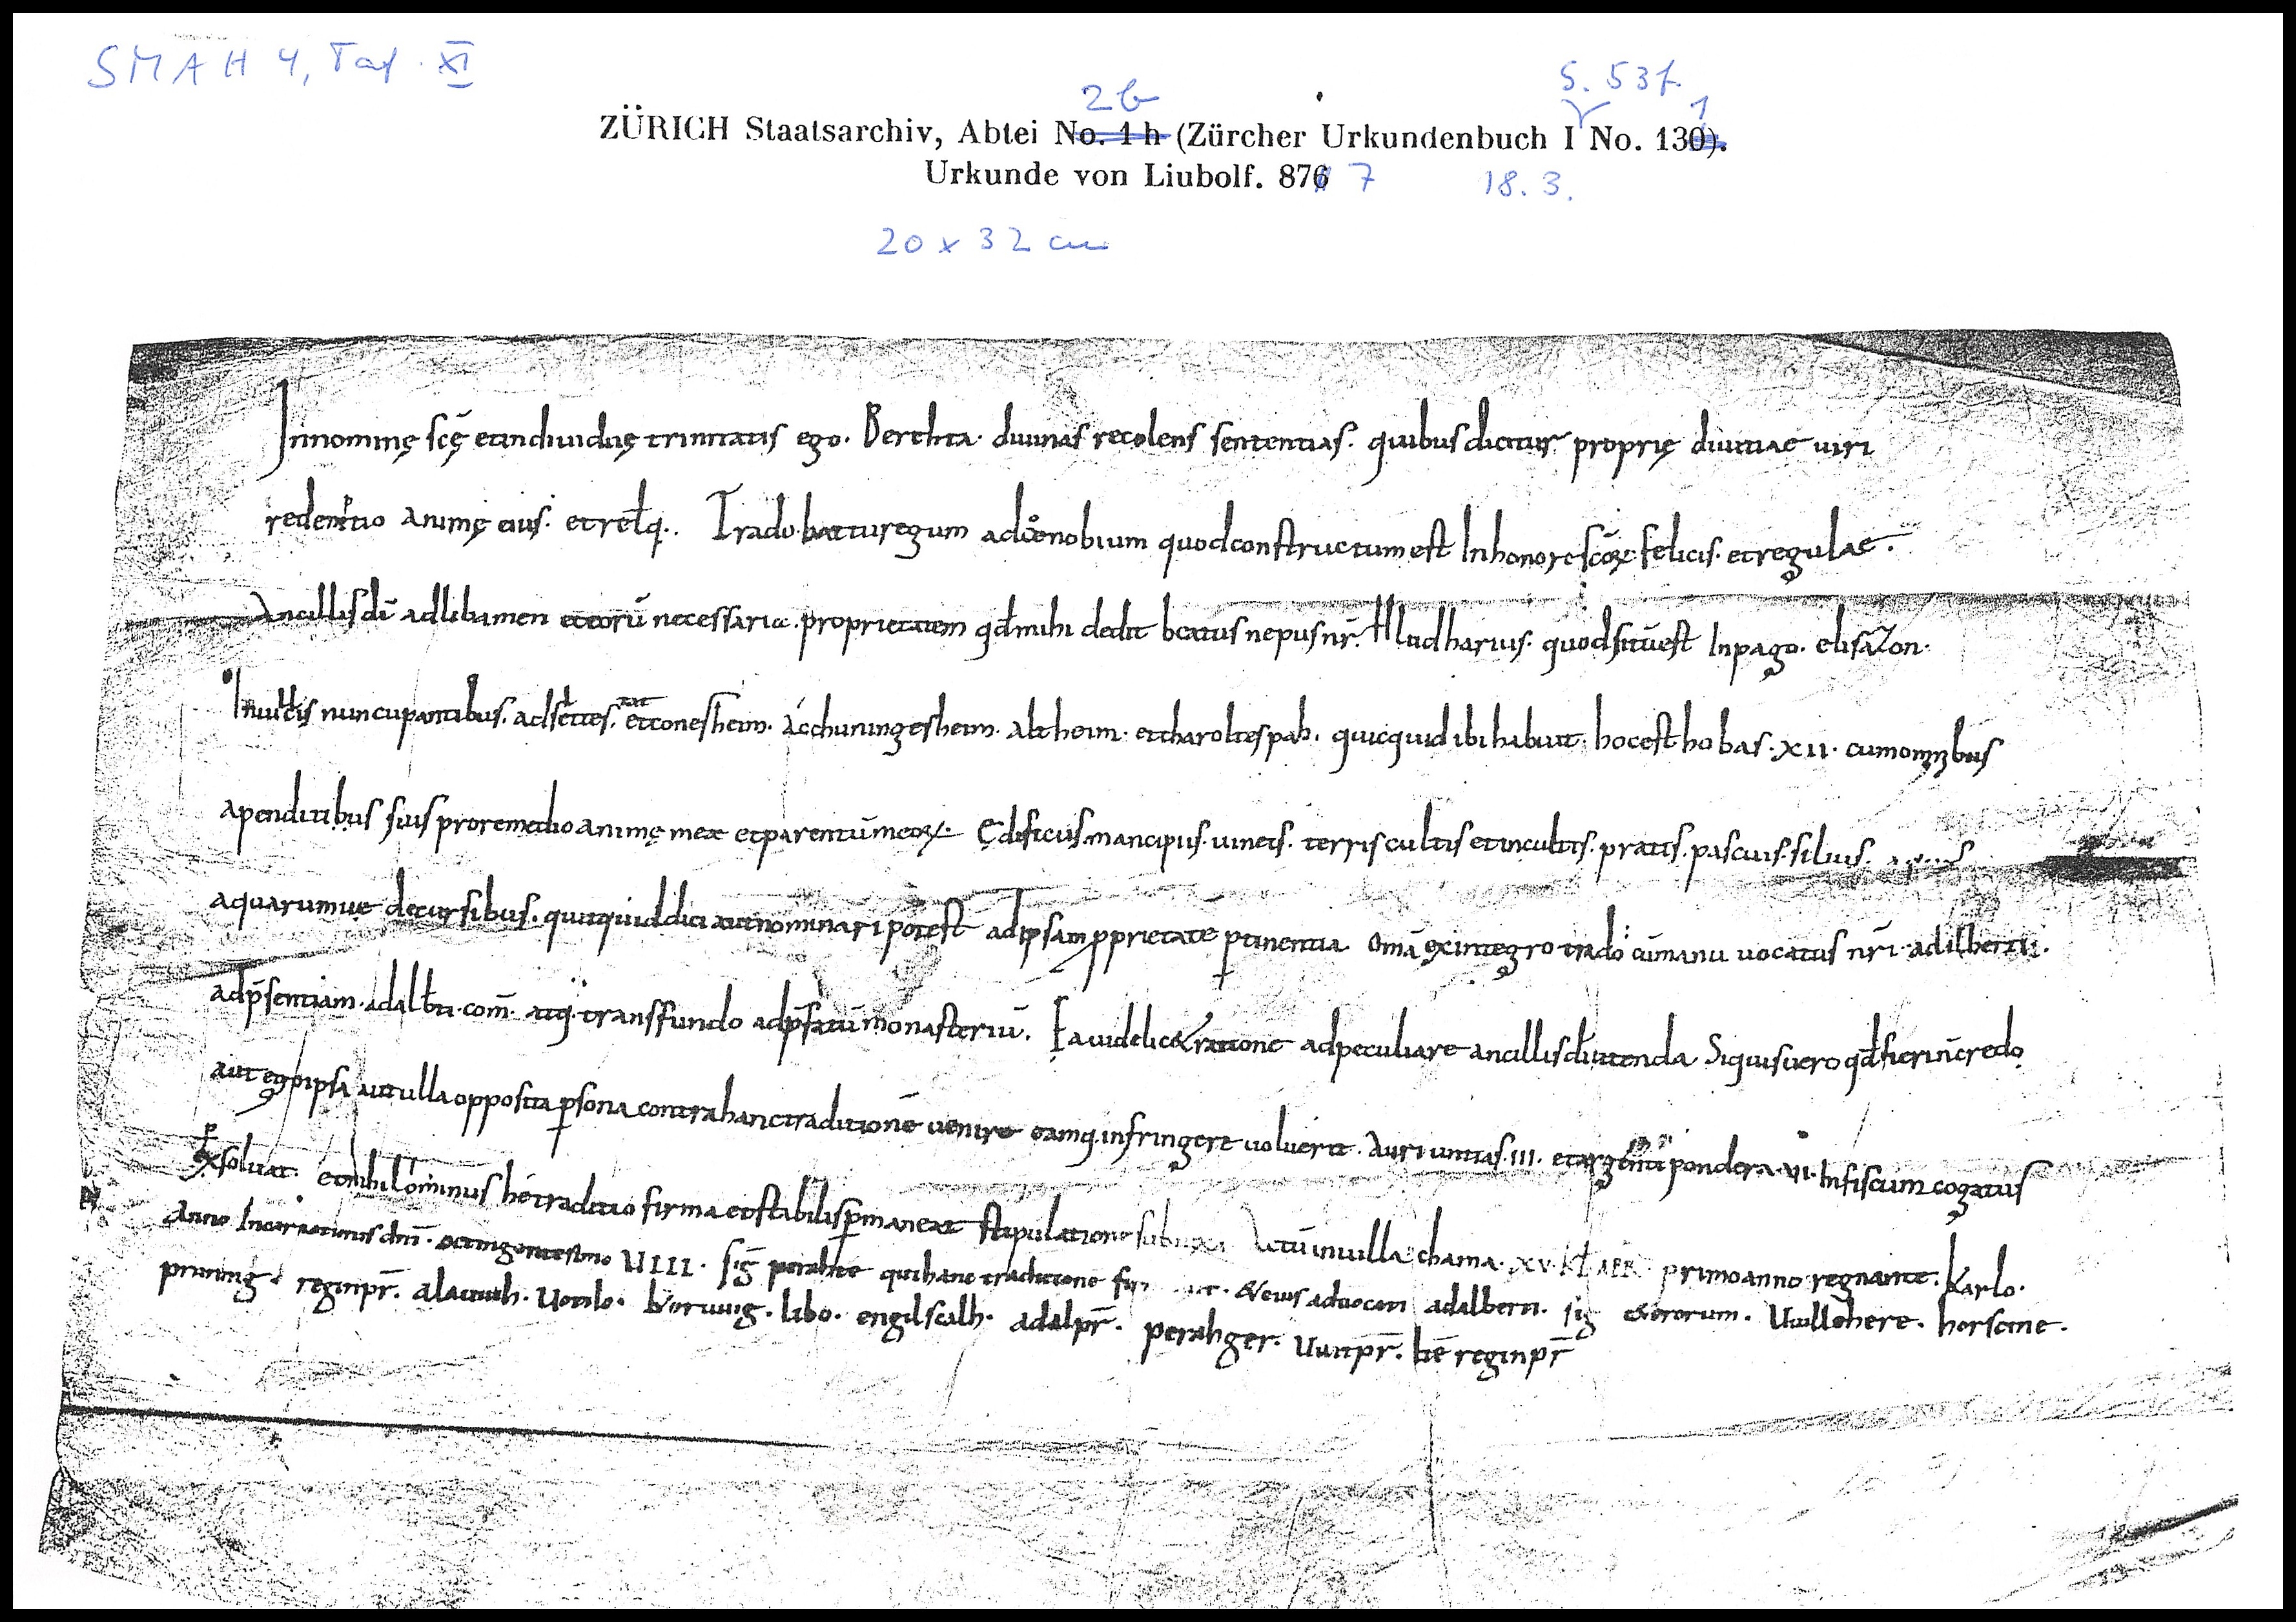 SMAH 4, Taf. XI
2b
S. 53f.
1
ZÜRICH Staatsarchiv, Abtei No. 1 h (Zürcher Urkundenbuch I No. 130).
Urkunde von Liubolf. 876 7 18. 3.
20 x 32 cm
Innominę scę̄ etindiuiduę trinitatis ego. Berchta. diuinas recolens sententias. quibus dicitur proprię diuitiae uiri
redemptio animę eius. et reliq.. Trado. hac turegum ad coenobium quod constructum est In honore scōꝝ felicis. et regulae.
Ancillis dī ad libamen et eorū necessaria. proprietatem qđ mihi dedit beatus nepus nr̄. Hludharius. quod sitū est In pago. elisazon.
In nuncupantibus. ad et tonesheim. acchuningesheim. altheim. et haroltespah. quicquid ibi habuit. hoc est hobas. xii. cum omnibus
apenditibus suis pro remedio animę meae et parentū meoꝝ. Ędificiis. mancipiis. uineis. terris cultis et incultis. pratis. pascuis. siluis.
aquarumue decursibus. quicquid dici aut nominari potest ad ipsam ꝓprietatē ꝑtinentia omā ex integro trado cū manu uocatus nr̄i. adilberti.
ad p̄sentiam. adalbti. com̄. atq. transfundo ad p̄fatū monasteriū. Ea uidelic& ratione ad peculiare ancillis dī utenda Si quis uero qđ fieri n̄ credo
aut ego ipsa aut ulla opposita ꝑsona contra hanc traditionē uenire eamq. infringere uoluerit. Auri untias. III. et argenti pondera. vi. In fiscum cogatus
exsoluat. et nihilominus hec traditio firma et stabilis ꝑmaneat stipulatione subnixa Actū in uilla chama. xv. kł apr primo anno regnante. karlo.
Anno Incarnationis dn̄i. octingentesimo VIIII. siḡ perahte qui hanc traditione & eius aduocati adalberti. sig &erorum. Uuillehere. horscine.
pruning. reginpr̄. alauuih. Uonlo. libo. engilscalh. adalpr̄. perahger. Uuitpr̄. reginpr̄